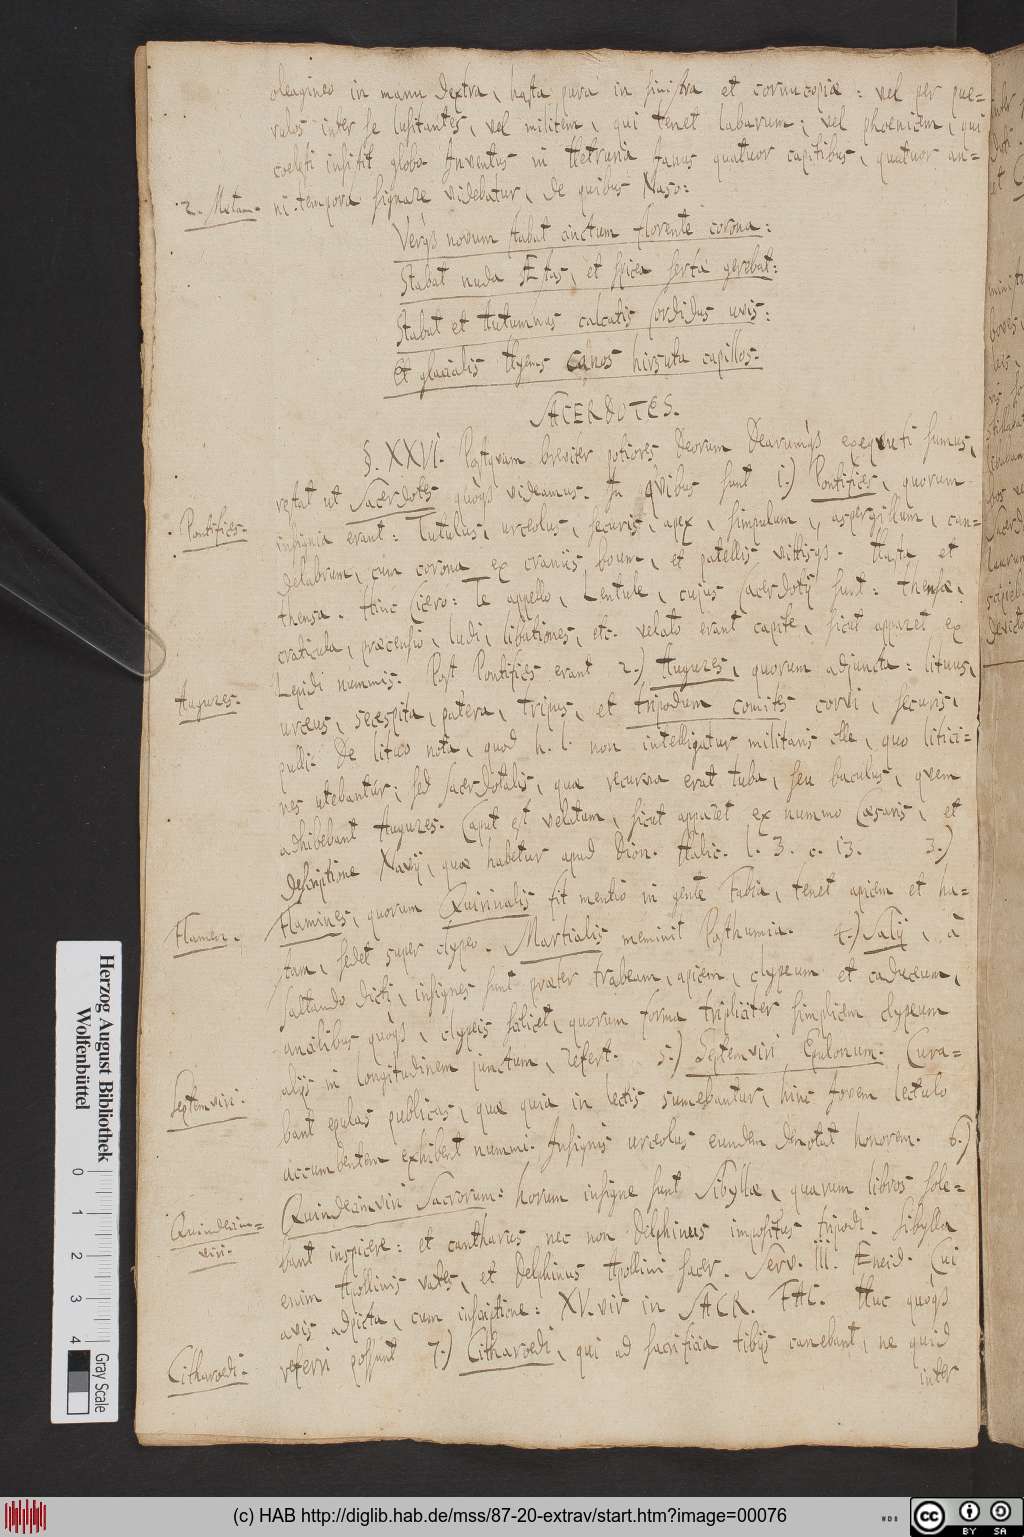 oleagineo in manu dextra, hasta pura in sinistra et cornucopiæ: vel per pue=
rulos inter se lusitantes, vel militem, qui tenet labarum; vel phoenicem, qui
coelesti insistit globo. Inventus in Hetruria Janus quatuor capitibus, quatuor an=
2. Metam. ni tempora signare videbatur, de quibus Naso:
Verqз novum stabat cinctum florente corona:
Stabat nuda Æstas, et spicea serta gerebat:
Stabat et Autumnus calcatis sordidus uvis:
Et glacialis Hyems canos hirsuta capillos.
SACERDOTES.
§. XXVI. Postquam breviter potiores Deorum Dearumqз exequuti sumus,
restat ut Sacerdotes quoqз videamus. In qvibus sunt 1.) Pontifices, quorum
Pontifices. insignia erant: Tutulus, urceolus, securis, apex, simpulum, aspergillum, can=
delabrum, cum corona ex craniis boum, et patellis vittisqз. Hasta et
thensa. Hinc Cicero: Te appello, Lentule, cujus Sacerdotij sunt: thensæ,
craticula, præcensio, ludi, libationes, etc. velato erant capite, sicut apparet ex
Lepidi nummis. Post Pontifices erant 2.) Augures, quorum adjuncta: lituus,
Augures. urceus, secespita, patera, tripus, et tripodum comites corvi, securis,
pulli. De lituo nota, quod h. l. non intelligatur militaris ille, quo liticii=
nes utebantur; sed sacerdotalis, quæ recurva erat tuba, seu baculus, quem
adhibebant Augures. Caput est velatum, sicut apparet ex nummo Cæsaris, et
descriptione Navij, quæ habetur apud Dion. Halic. l. 3. c. 13. 3.)
Flamen. Flamines, quorum Quirinalis fit mentio in gente Fabia, tenet apicem et ha=
stam, sedet super clypeo. Martialis meminit Posthumia. 4.) Salij, à
saltando dicti, insignes sunt præter trabeam, apicem, clypeum et caduceum,
ancilibus quoqз, clypeis scilicet, quorum forma tripliciter simplicem clypeum
alijs in longitudinem junctum, refert. 5.) Septemviri Epulonum. Cura=
Septemviri. bant epulas publicas, quæ quia in lectis sumebantur, hinc Jovem lectulo
accumbentem exhibent nummi. Insignis urceolus eundem denotat honorem. 6.)
Quindecim= Quindecimviri Sacrorum: horum insigne sunt Sibyllæ, quarum libros sole=
viri. bant inspicere: et cantharus nec non Delphinus impositus tripodi. Sibylla
enim Apollinis vates, et Delphinus Apollini sacer. Serv. III. Æneid. Cui
avis adpicta, cum inscriptione: XV. vir in SACR. FAC. Huc quoqз
Citharoedi. referri possunt 7.) Citharoedi, qui ad sacrificia tibijs canebant, ne quid
inter
Herzog August Bibliothek
Wolfenbüttel
0 1 2 3 4
Gray Scale
(c) HAB http://diglib.hab.de/mss/87-20-extrav/start.htm?image=00076
cc BY SA